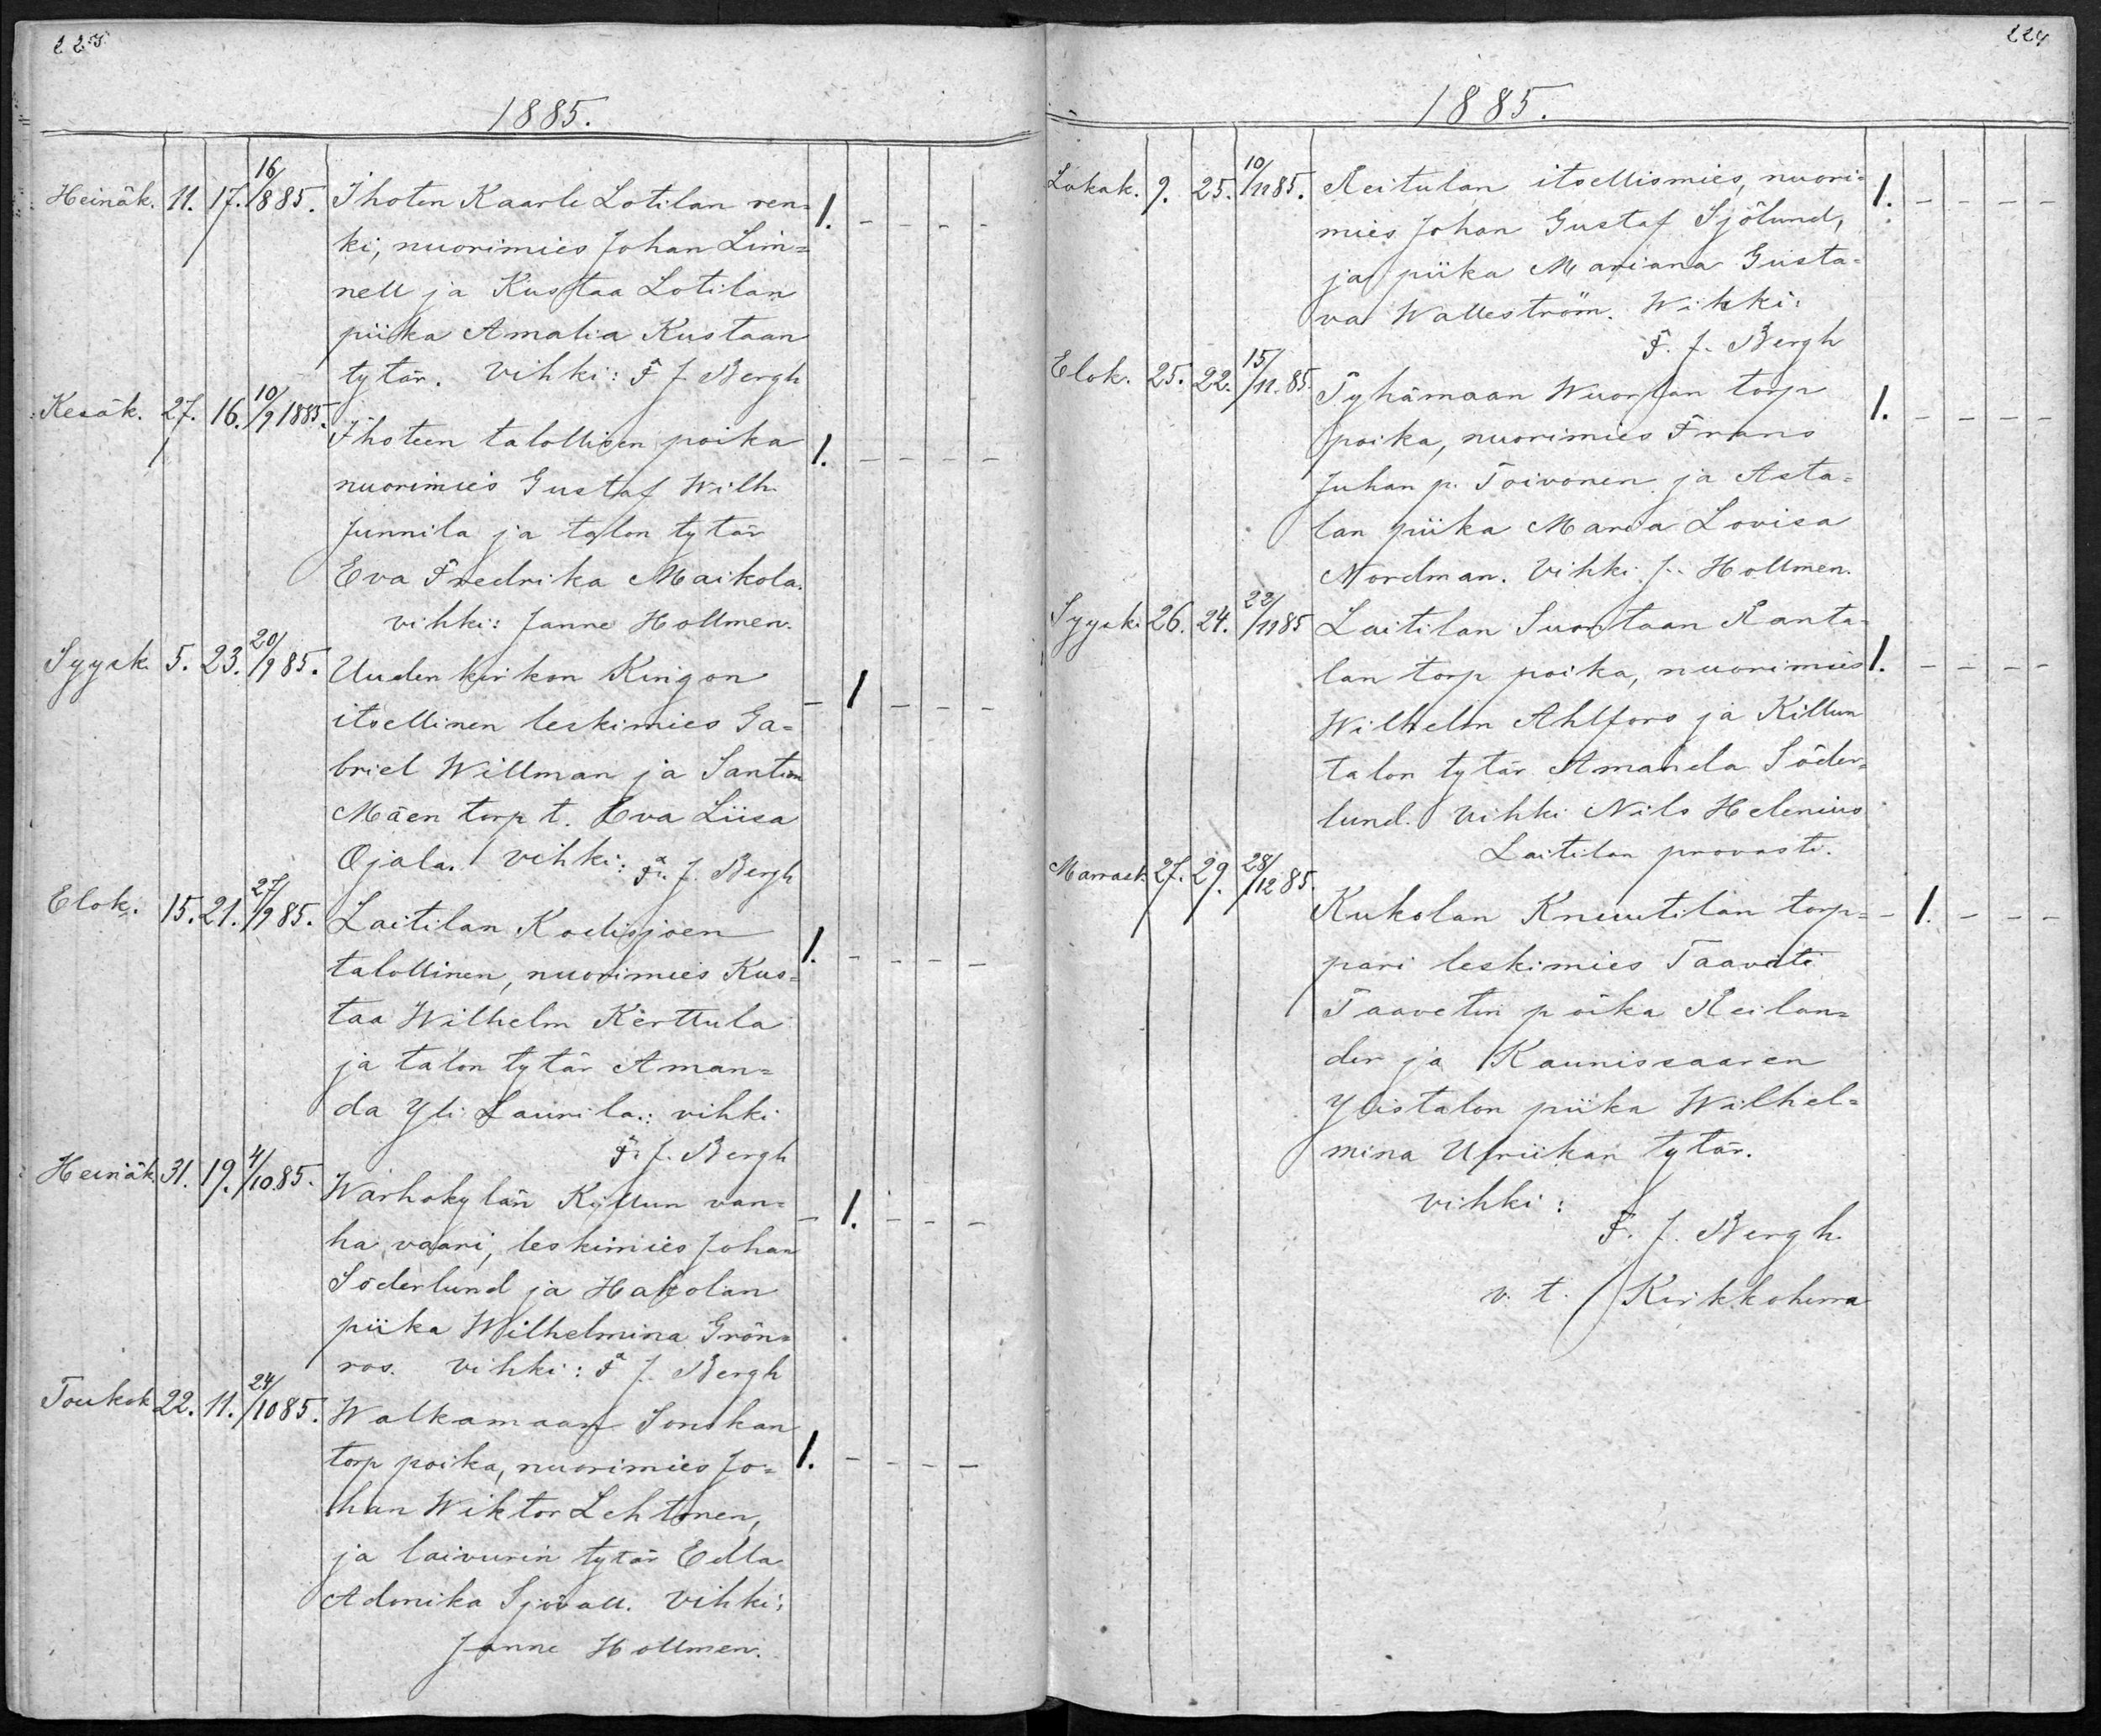 223
1885.
Heinäk. 11. 17. 16/8 85. Ihoten Kaarle Lotilan ren= 1. - - - -
ki, nuorimies Johan Lin=
nell ja Kustaa Lotilan
piika Amalia Kustaan
tytär. Vihki: F J. Bergh
Kesäk. 27. 16. 10/9 1885. Ihoteen talollisen poika 1. - - - -
nuorimies Gustaf Wilh.
Junnila ja talon tytär
Eva Fredrika Maikola.
vihki: Janne Hollmen.
Syysk. 5. 23. 20/9 85. Uuden kirkon Ringon - 1 - - -
itsellinen leskimies Ga=
briel Willman ja Santion
Mäen torp t. Eva Liisa
Ojala. vihki: F. J. Bergh
Elok. 15. 21. 27/9 85. Laitilan Kodisjoen 1. - - - -
talollinen, nuorimies Kus=
taa Wilhelm Kerttula
ja talon tytär Aman=
da Yli Laurila.: vihki
F. J. Bergh
Heinäk. 31. 19. 4/10 85. Warhokylän Kyllun van= - 1. - - -
ha vaari, leskimies Johan
Söderlund ja Hakolan
piika Wilhelmina Grön=
ros. vihki: F J. Bergh
Toukok. 22. 11. 24/10 85. Walkamaan
torp poika, nuorimies Jo= 1. - - - -
han Wiktor Lehtonen,
ja laivurin tytär Edla
Adonika Sjövall. Vihki:
Janne Hollmen.
224
1885.
Lokak. 9. 25. 10/11 85. Reitulan itsellismies, nuori= 1. - - - -
mies Johan Gustaf Sjölund,
ja piika Mariana Gusta=
va Walleström. Wihki:
F. J. Bergh
Elok. 25. 22. 15/11. 85. Pyhämaan torp 1. - - - -
poika, nuorimies Frans
Juhan p. Toivonen ja Asta=
lan piika Maria Lovisa
Nordman. Vihki J. Hollmen.
Syysk. 26. 24. 22/11 85 Laitilan Suontaan Ranta=
lan torp poika, nuorimies 1. - - - -
Wilhelm Ahlfors ja Killun
talon tytär Amanda Söder=
lund. Vihki Nils Helenius
Laitilan provasti.
Marrask. 27. 29. 28/12 85.
Kukolan Knuutilan torp= - 1. - - -
pari leskimies Taavetti
Taavetin poika Reilan=
der ja Kaunissaaren
Ylistalon piika Wilhel=
mina Ulriikan tytär.
vihki:
F. J. Bergh.
v. t. Kirkkoherra